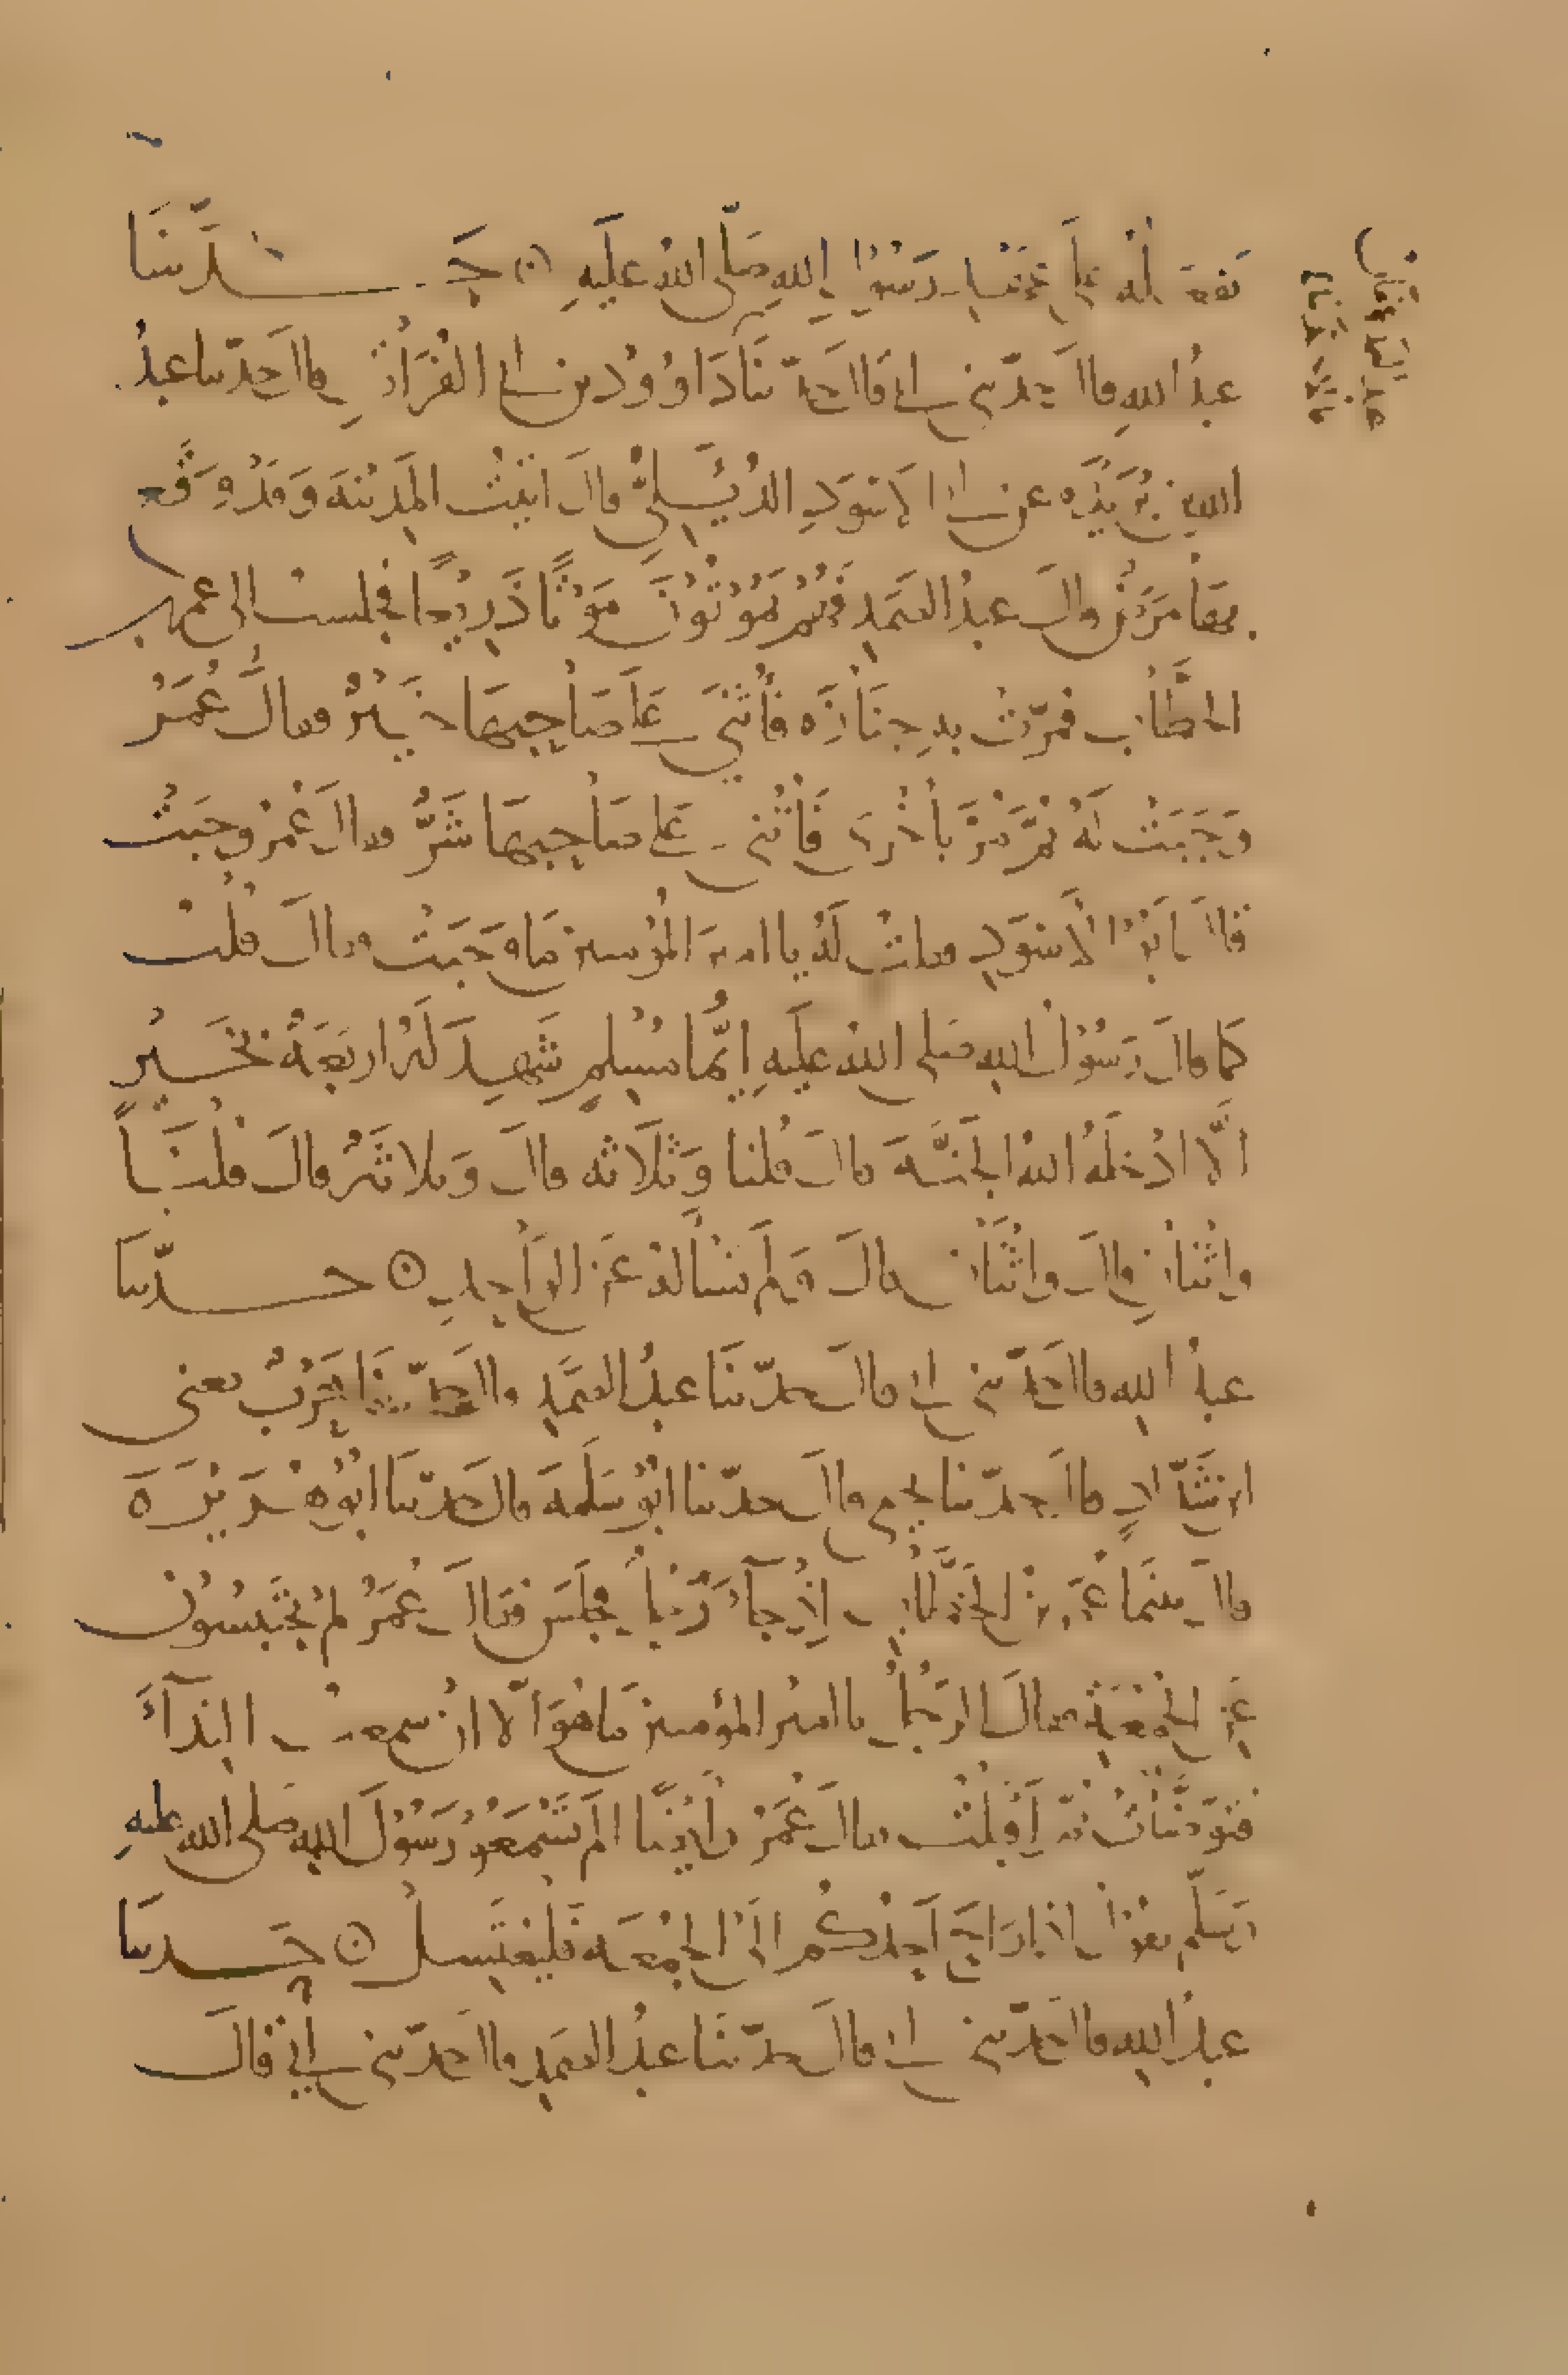 رسول الله صلى الله عليه ۞ حدثنا
عبد الله قال حدثني أبي قال حدثنا داوود بن أبي الفرات قال حدثنا عبد
الله بن بريده عن أبي الاسود الديلي قال اتيت المدينة وقد وقع
بها مرض قال عبد الصمد فهم يموتون موتا ذريعا فجلست الى عمر بن
الخطاب فمرت به جنازه فأثني على صاحبها خير فقال عمر
وجبت ثم مر بأخرى فأثني على صاحبها شر فقال عمر وجبت
فقال أبو الأسود فقلت له يا امير المؤمنين ما وجبت فقال قلت
كما قال رسول الله صلى الله عليه ايما مسلم شهد له اربعة بخير
الا ادخله الله الجنة قال قلنا وثلاثه قال وثلاثة قال قلنا
واثنان قال واثنان قال ولم نسأله عن الواحد ۞ حدثنا
عبد الله قال حدثني أبي قال حدثنا عبد الصمد قال حدثنا حرب يعني
ابن شداد قال حدثنا يحيى قال حدثنا أبو سلمة قال حدثنا أبو هريرة
قال بينما عمر بن الخطاب اذ جاء رجل فجلس فقال عمر لم تحتبسون
عن الجمعة فقال الرجل يا امير المؤمنين ما هو الا ان سمعت النداء
فتوضأت ثم اقبلت فقال عمر وأيضا الم تسمعوا رسول الله صلى الله عليه
وسلم يقول اذا راح أحدكم الى الجمعة فليغتسل ۞ حدثنا
عبد الله قال حدثني أبي قال حدثنا عبد الصمد قال حدثني أبي قال